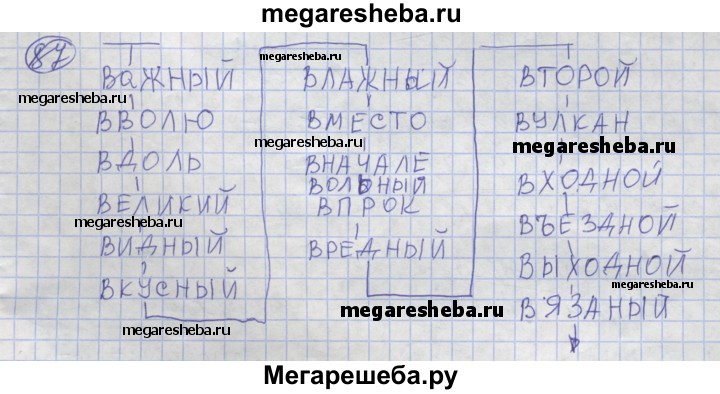 megaresheba.ru
87
ВАЖНЫЙ
ВВОЛЮ
ВДОЛЬ
ВЕЛИКИЙ
ВИДНЫЙ
ВКУСНЫЙ
megaresheba.ru
megaresheba.ru
megaresheba.ru
megaresheba.ru
ВЛАЖНЫЙ
ВМЕСТО
ВНАЧАЛЕ
ВОЛЬНЫЙ
ВПРОК
ВРЕДНЫЙ
megaresheba.ru
megaresheba.ru
ВТОРОЙ
ВУЛКАН
ВХОДНОЙ
ВЪЕЗДНОЙ
ВЫХОДНОЙ
ВЯЗАНЫЙ
megaresheba.ru
Мегарешеба.ру